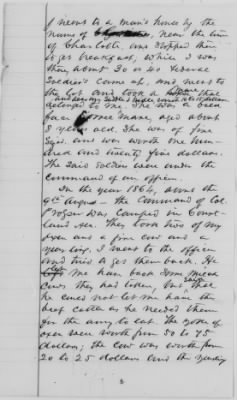 I went to a man's house by the
name of near the line
of Charlotte, and stopped there
to get breakfast, while I was
there about 30 or 40 Federal
Soldiers came up, and went to
the lot and took a mare that
and saddle & bridle
belonged to me. She was a
mare, aged about
8 years old. She was of fine
and was worth one hun-
dred and twenty five dollars.
The said soldiers were under the
command of an officer.
In the year 1864, about the
9th August — the command of Col.
was camped in
They took two of my
oxen and a fine cow and a
yearling. I went to the officer
and tried to get them back. He
let me have back some milch
cows they had taken, but said that
he could not let me have the
beef cattle as he needed them
for the army to eat. The yoke of
oxen were worth from 50 to 75
dollars; the cow was worth from
20 to 25 dollars and the yearling